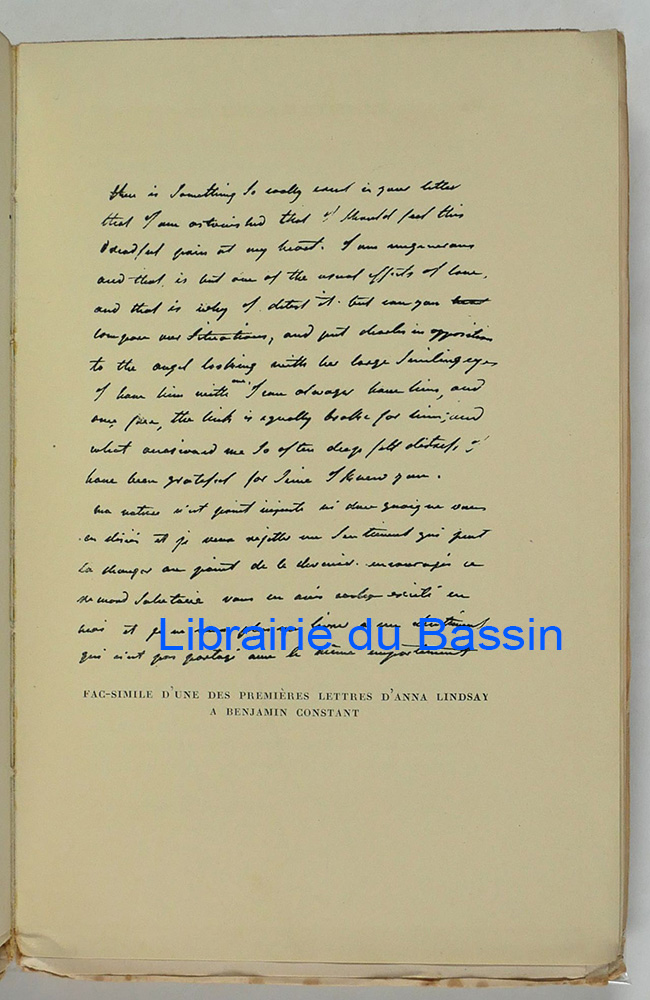 there is something so really cruel in your letter
that I am astonished that I should feel this
dreadful pain at my heart. I am ungenerous
and that is but one of the usual effects of love,
and that is why I detest it. but can you
compare our situations, and put charles in opposition
to the angel looking with her large smiling eyes
I have him with me I can always have him, and
the link is equally broke for him, and
what me so often I
have been grateful for since I knew you.
ma nature n'est point ni dure quoique vous
en disiés et je veux rejetter un sentiment qui peut
la changer au point de le devenir. encouragés ce
remord salutaire vous en avés excité en
moi et je ne livrer a un sentiment
qui n'est pas partagé avec le même emportement
Librairie du Bassin
FAC-SIMILE D'UNE DES PREMIÈRES LETTRES D'ANNA LINDSAY
A BENJAMIN CONSTANT